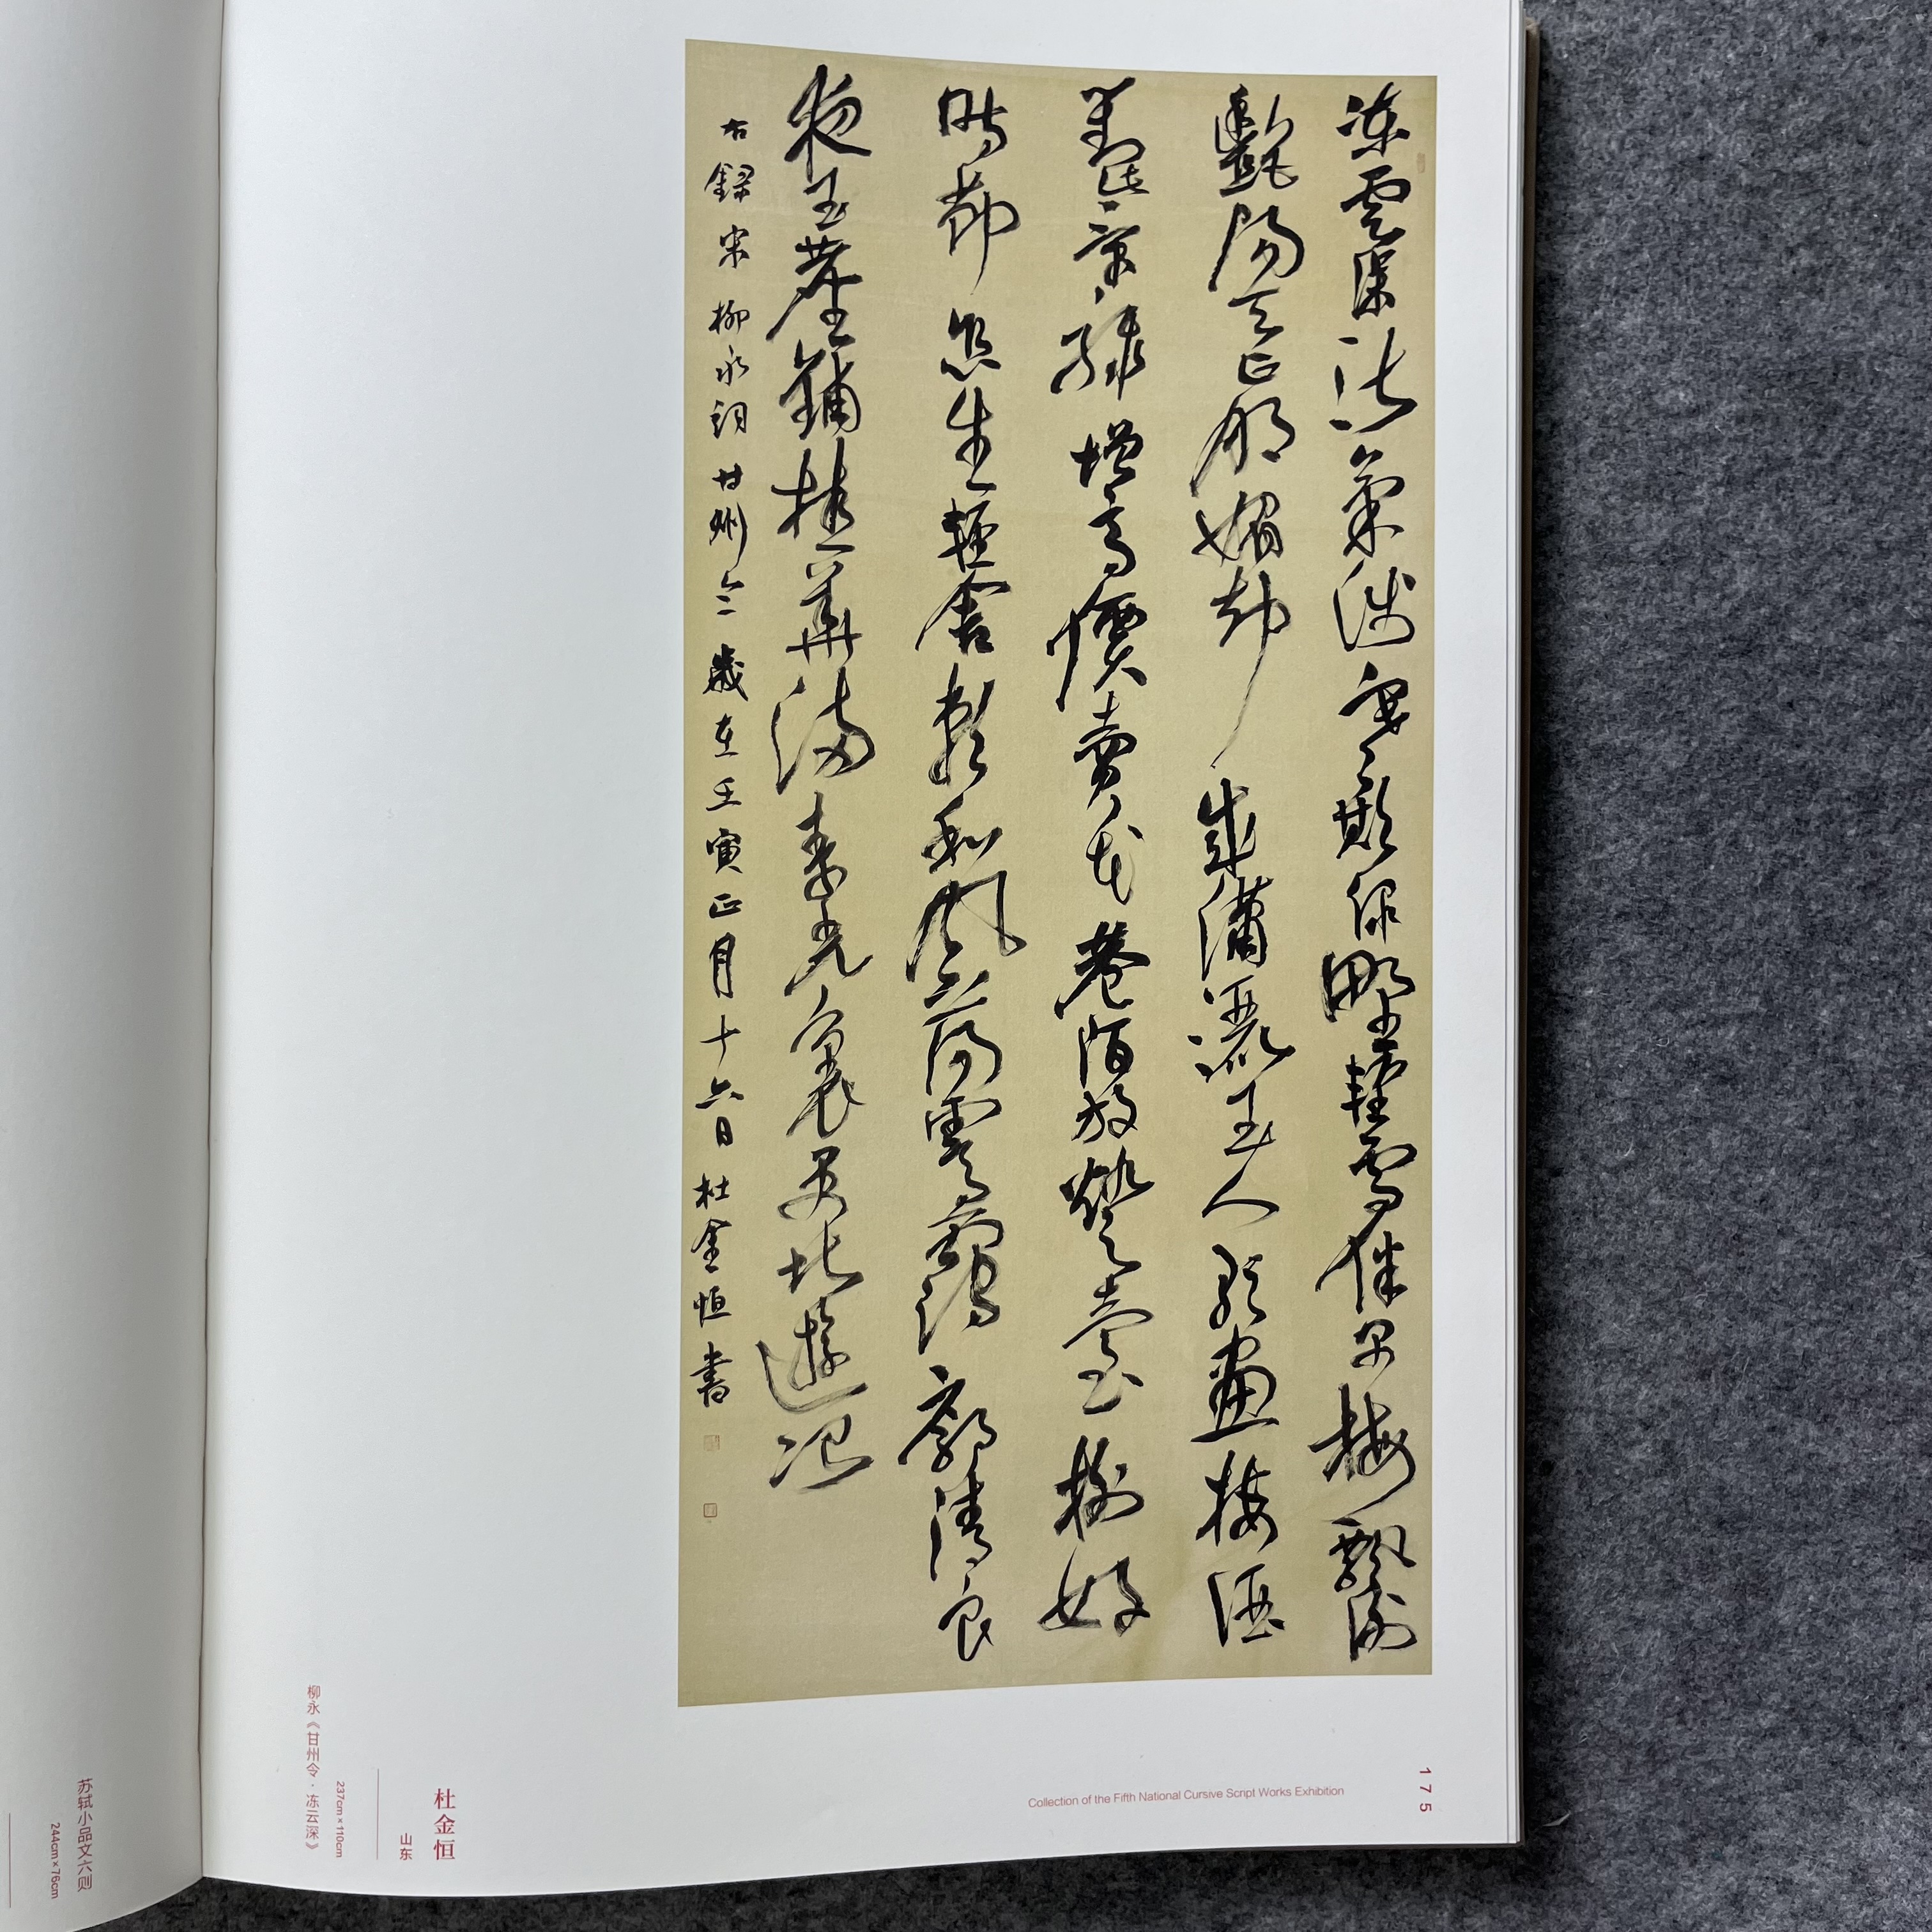 凍雲深淑氣淺寒欺綠野輕雪伴早梅飄謝
豔陽天正明媚却成瀟灑玉人歌畫樓酒
對此景驟增高價賣花巷陌放燈臺榭好
時節怎生輕舍賴和風蕩霽靄廓清良
夜玉塵鋪桂華滿素光裏更堪遊冶
右録宋柳永詞甘州令歲在壬寅正月十六日杜金恒書
175
Collection of the Fifth National Cursive Script Works Exhibition
杜金恒
山东
237cm×110cm
柳永《甘州令·冻云深》
苏轼小品文六则
244cm×76cm